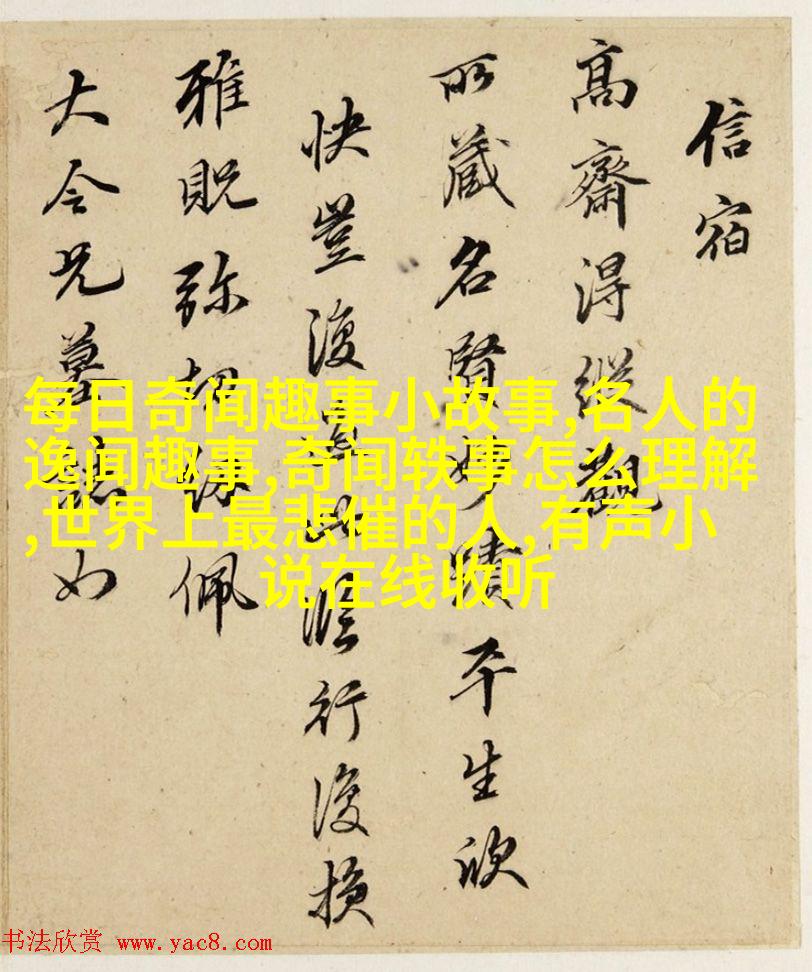 信宿
高齋得縱觀
所藏名賢妙蹟平生欣
快豈復過此行復損
雅貺弥佩
大令兄墓誌如
每日奇闻趣事小故事,名人的
逸闻趣事,奇闻轶事怎么理解
,世界上最悲催的人,有声小
说在线收听
书法欣赏 www.yac8.com